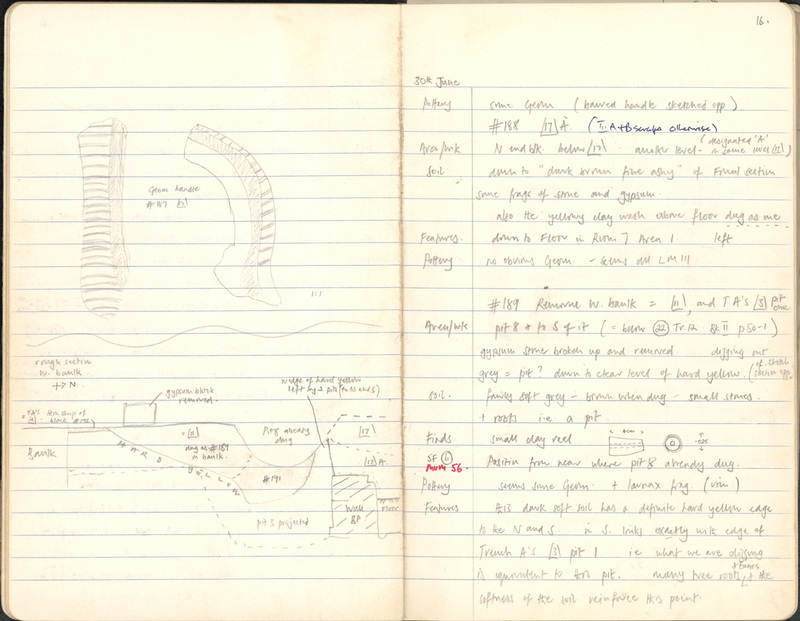 Geom handle
#187 [17]
1:1
rough section
W. baulk
→ N
gypsum block
removed
N edge of hard yellow
left by 2 pits (to N and S)
Baulk
HARD YELLOW
= [11]
dug as #189
in baulk
Pit 8 already
dug
[17]
[17]A
#191
pit 3 projected
Wall
BP
16.
30th June
Pottery some Geom (barred handle sketched opp)
#188 [17] A (III A+B scraps otherwise)
Area/wk N end blk. below [17] another level - (designated 'A'
in same level [17])
Soil down to "dark brown fine ashy" of Final section
some frags of stone and gypsum.
also the yellowy clay wash above floor dug as one
Features. down to Floor in Room 7 Area 1 left
Pottery no obvious Geom - seems all LM III
#189 Remove W. baulk = [11], and T A's [3] pit
one
Area/wk pit 8 to S of it (= below (22) Tr. 12. Bk II p 50-1)
gypsum stones broken up and removed digging out
grey = pit? down to clear level of hard yellow. (cf. sketch
section opp.
Soil. fairly soft grey - brown when dug - small stones
+ roots i.e a pit.
Finds small clay reel
SF (6) Position from near where pit 8 already dug.
MUM 56.
Pottery seems some Geom. + larnax frag. (urin)
Features this dark soft soil has a definite hard yellow edge
to the N and S in S. links exactly with edge of
Trench A's [3] pit 1 ie what we are digging
is equivalent to this pit. many tree roots, + the
softness of the soil reinforce this point.